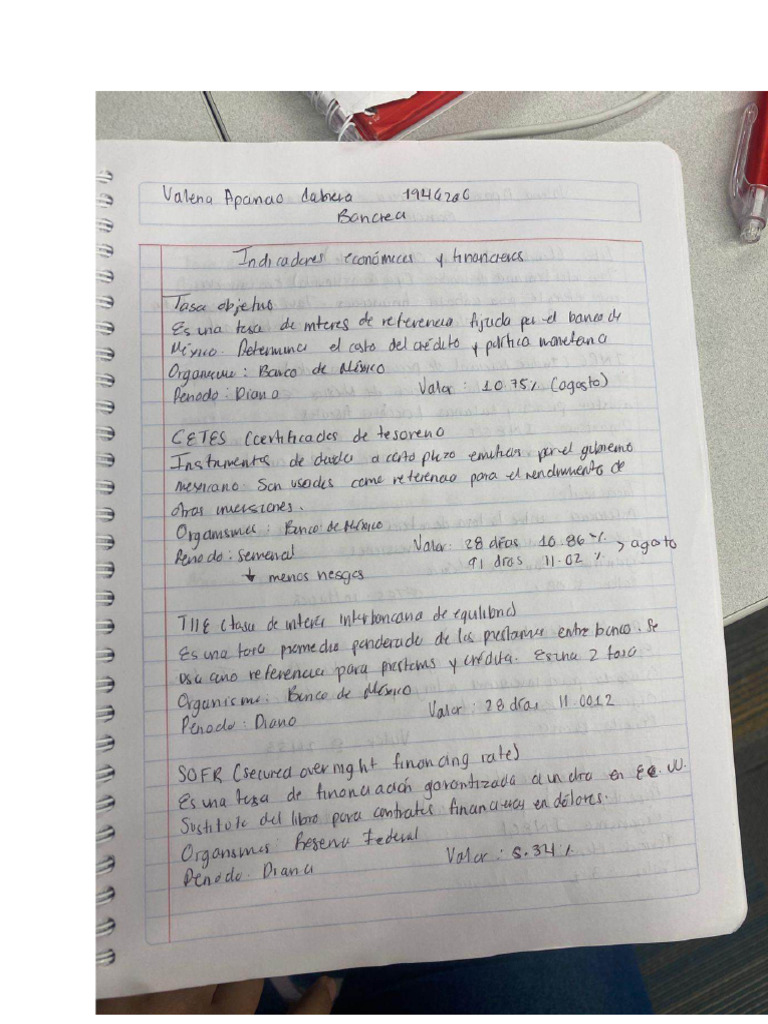 Valeria Aparicio Cabrera 1946206
Bancrea
Indicadores económicos y financieros
Tasa objetivo
Es una tasa de interes de referencia fijada por el banco de
México. Determina el costo del crédito y política monetaria
Organismo: Banco de México
Periodo: Diario Valor: 10.75% (agosto)
CETES (certificados de tesoreria
Instrumentos de deuda a corto plazo emitidas por el gobierno
mexicano. Son usados como referencia para el rendimiento de
otras inversiones.
Organismos: Banco de México
Periodo: semanal Valor: 28 días 10.86% > agosto
↓ menos riesgos 91 días 11.02 %
TIIE (tasa de interes interbancaria de equilibrio)
Es una tasa promedio ponderado de los prestamos entre banco. Se
usa como referencia para prestamos y crédito. Es una 2 tasa
Organismo: Banco de México
Periodo: Diario Valor: 28 días 11.0012
SOFR (secured over night financing rate)
Es una tasa de financiación garantizada a un dia en EE.UU.
Sustituto del libro para contratos financieros en dólares.
Organismos: Reserva Federal
Periodo: Diaria Valor: 5.34%